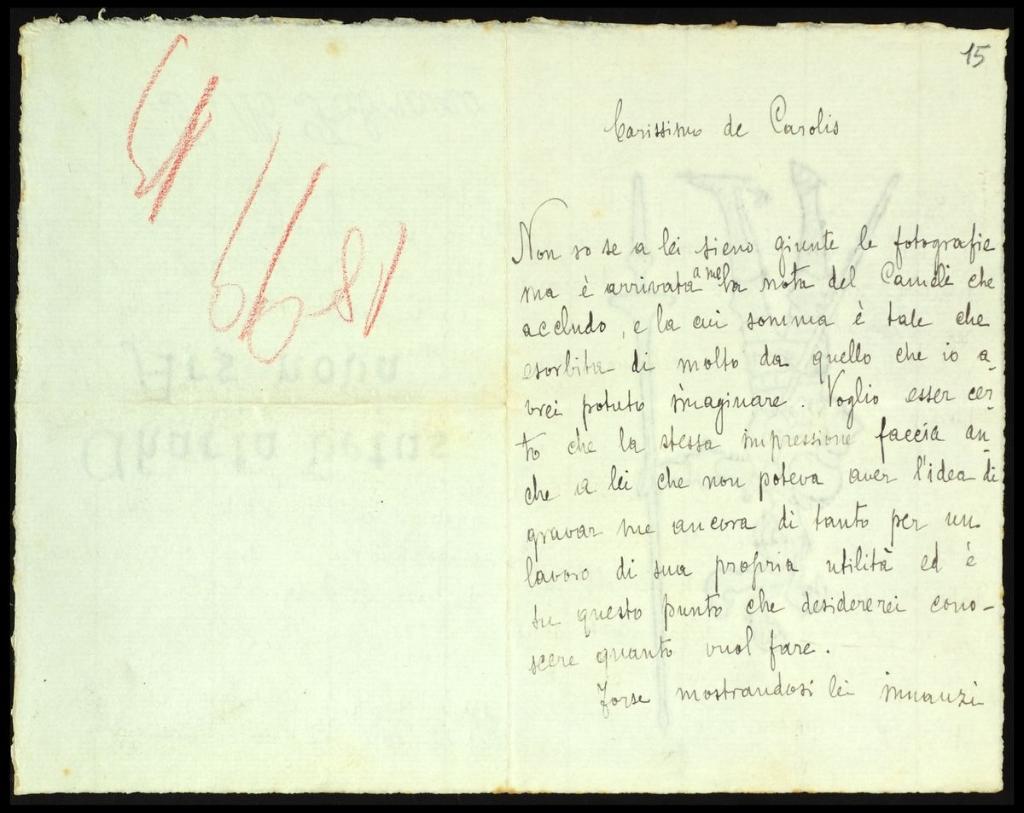 15
Carissimo de Carolis
Non so se a lei sieno giunte le fotografie
ma è arrivata a me la nota del Canelè che
accludo, e la cui somma è tale che
esorbita di molto da quello che io a-
vrei potuto imaginare. Voglio esser cer-
to che la stessa impressione faccia an-
che a lei che non poteva aver l'idea di
gravar me ancora di tanto per un
lavoro di sua propria utilità ed è
su questo punto che desidererei cono-
scere quanto vuol fare.
Forse mostrandosi lei innanzi